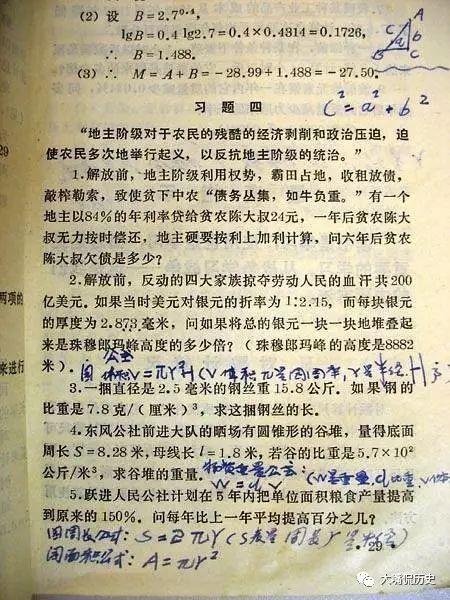 (2) 设 B=2.7⁰·⁴,
lgB=0.4 lg2.7=0.4×0.4314=0.1726,
∴ B=1.488.
(3) ∴ M=A+B=-28.99+1.488=-27.50.
A
C
b
B
C
习题四
c²=a²+b²
“地主阶级对于农民的残酷的经济剥削和政治压迫，迫
使农民多次地举行起义，以反抗地主阶级的统治。”
1.解放前，地主阶级利用权势，霸田占地，收租放债，
敲榨勒索，致使贫下中农“债务丛集，如牛负重。”有一个
地主以84%的年利率贷给贫农陈大叔24元，一年后贫农陈大
叔无力按时偿还，地主硬要按利上加利计算，问六年后贫农
陈大叔欠债是多少？
2.解放前，反动的四大家族掠夺劳动人民的血汗共200
亿美元。如果当时美元对银元的折率为1:2.15，而每块银元
的厚度为2.873毫米，问如果将总的银元一块一块地堆叠起
来是珠穆郎玛峰高度的多少倍？（珠穆郎玛峰的高度是8882
米）.
公式
V=πr²H (V体积 π是圆周率, r是半径 H
3.一捆直径是2.5毫米的钢丝重15.8公斤．如果钢的
比重是7.8克/（厘米）³，求这捆钢丝的长．
4.东风公社前进大队的晒场有圆锥形的谷堆，量得底面
周长S=8.28米，母线长l=1.8米，若谷的比重是5.7×10²
公斤/米³，求谷堆的重量．
公式: (W是重量, d比重, V体
W=d V
5.跃进人民公社计划在5年内把单位面积粮食产量提高
到原来的150%．问每年比上一年平均提高百分之几？
圆周公式: S=2πr (S表是圆周 r是半径)
·29·
圆面积公式: A=πr²
29
两项的
来进行
大墉侃历史